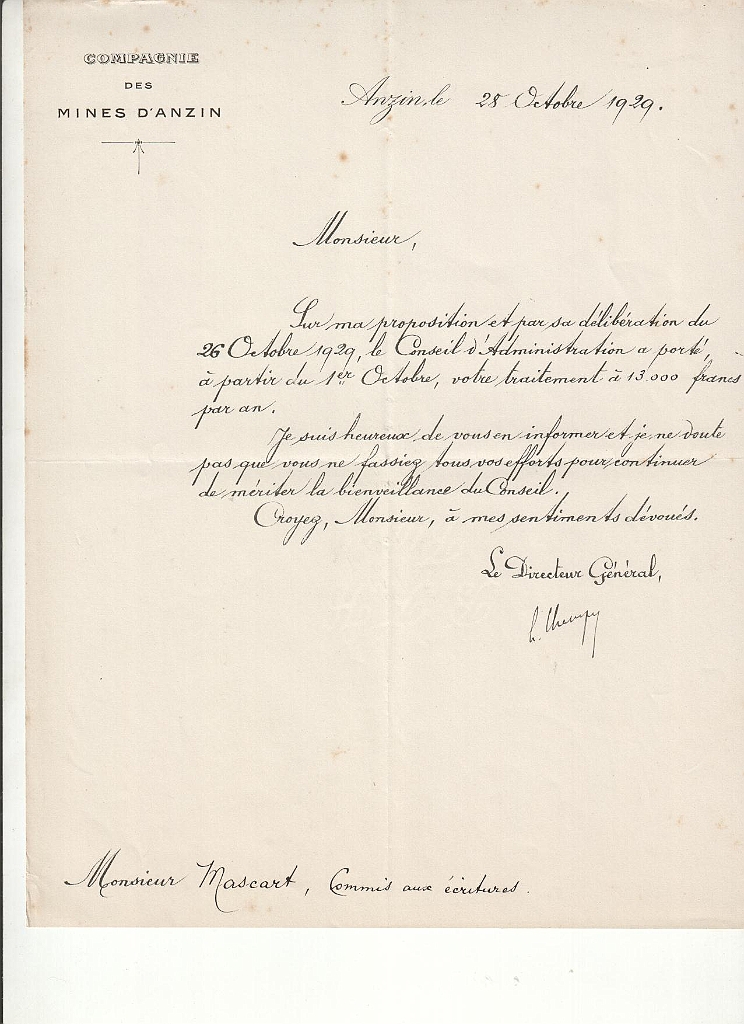 COMPAGNIE
DES
MINES D'ANZIN
Anzin, le 28 Octobre 1929.
Monsieur,
Sur ma proposition et par sa délibération du
26 Octobre 1929, le Conseil d'Administration a porté,
à partir du 1er Octobre, votre traitement à 13.000 francs
par an.
Je suis heureux de vous en informer et je ne doute
pas que vous ne fassiez tous vos efforts pour continuer
de mériter la bienveillance du Conseil.
Croyez, Monsieur, à mes sentiments dévoués.
Le Directeur Général,
Monsieur Mascart, Commis aux écritures.